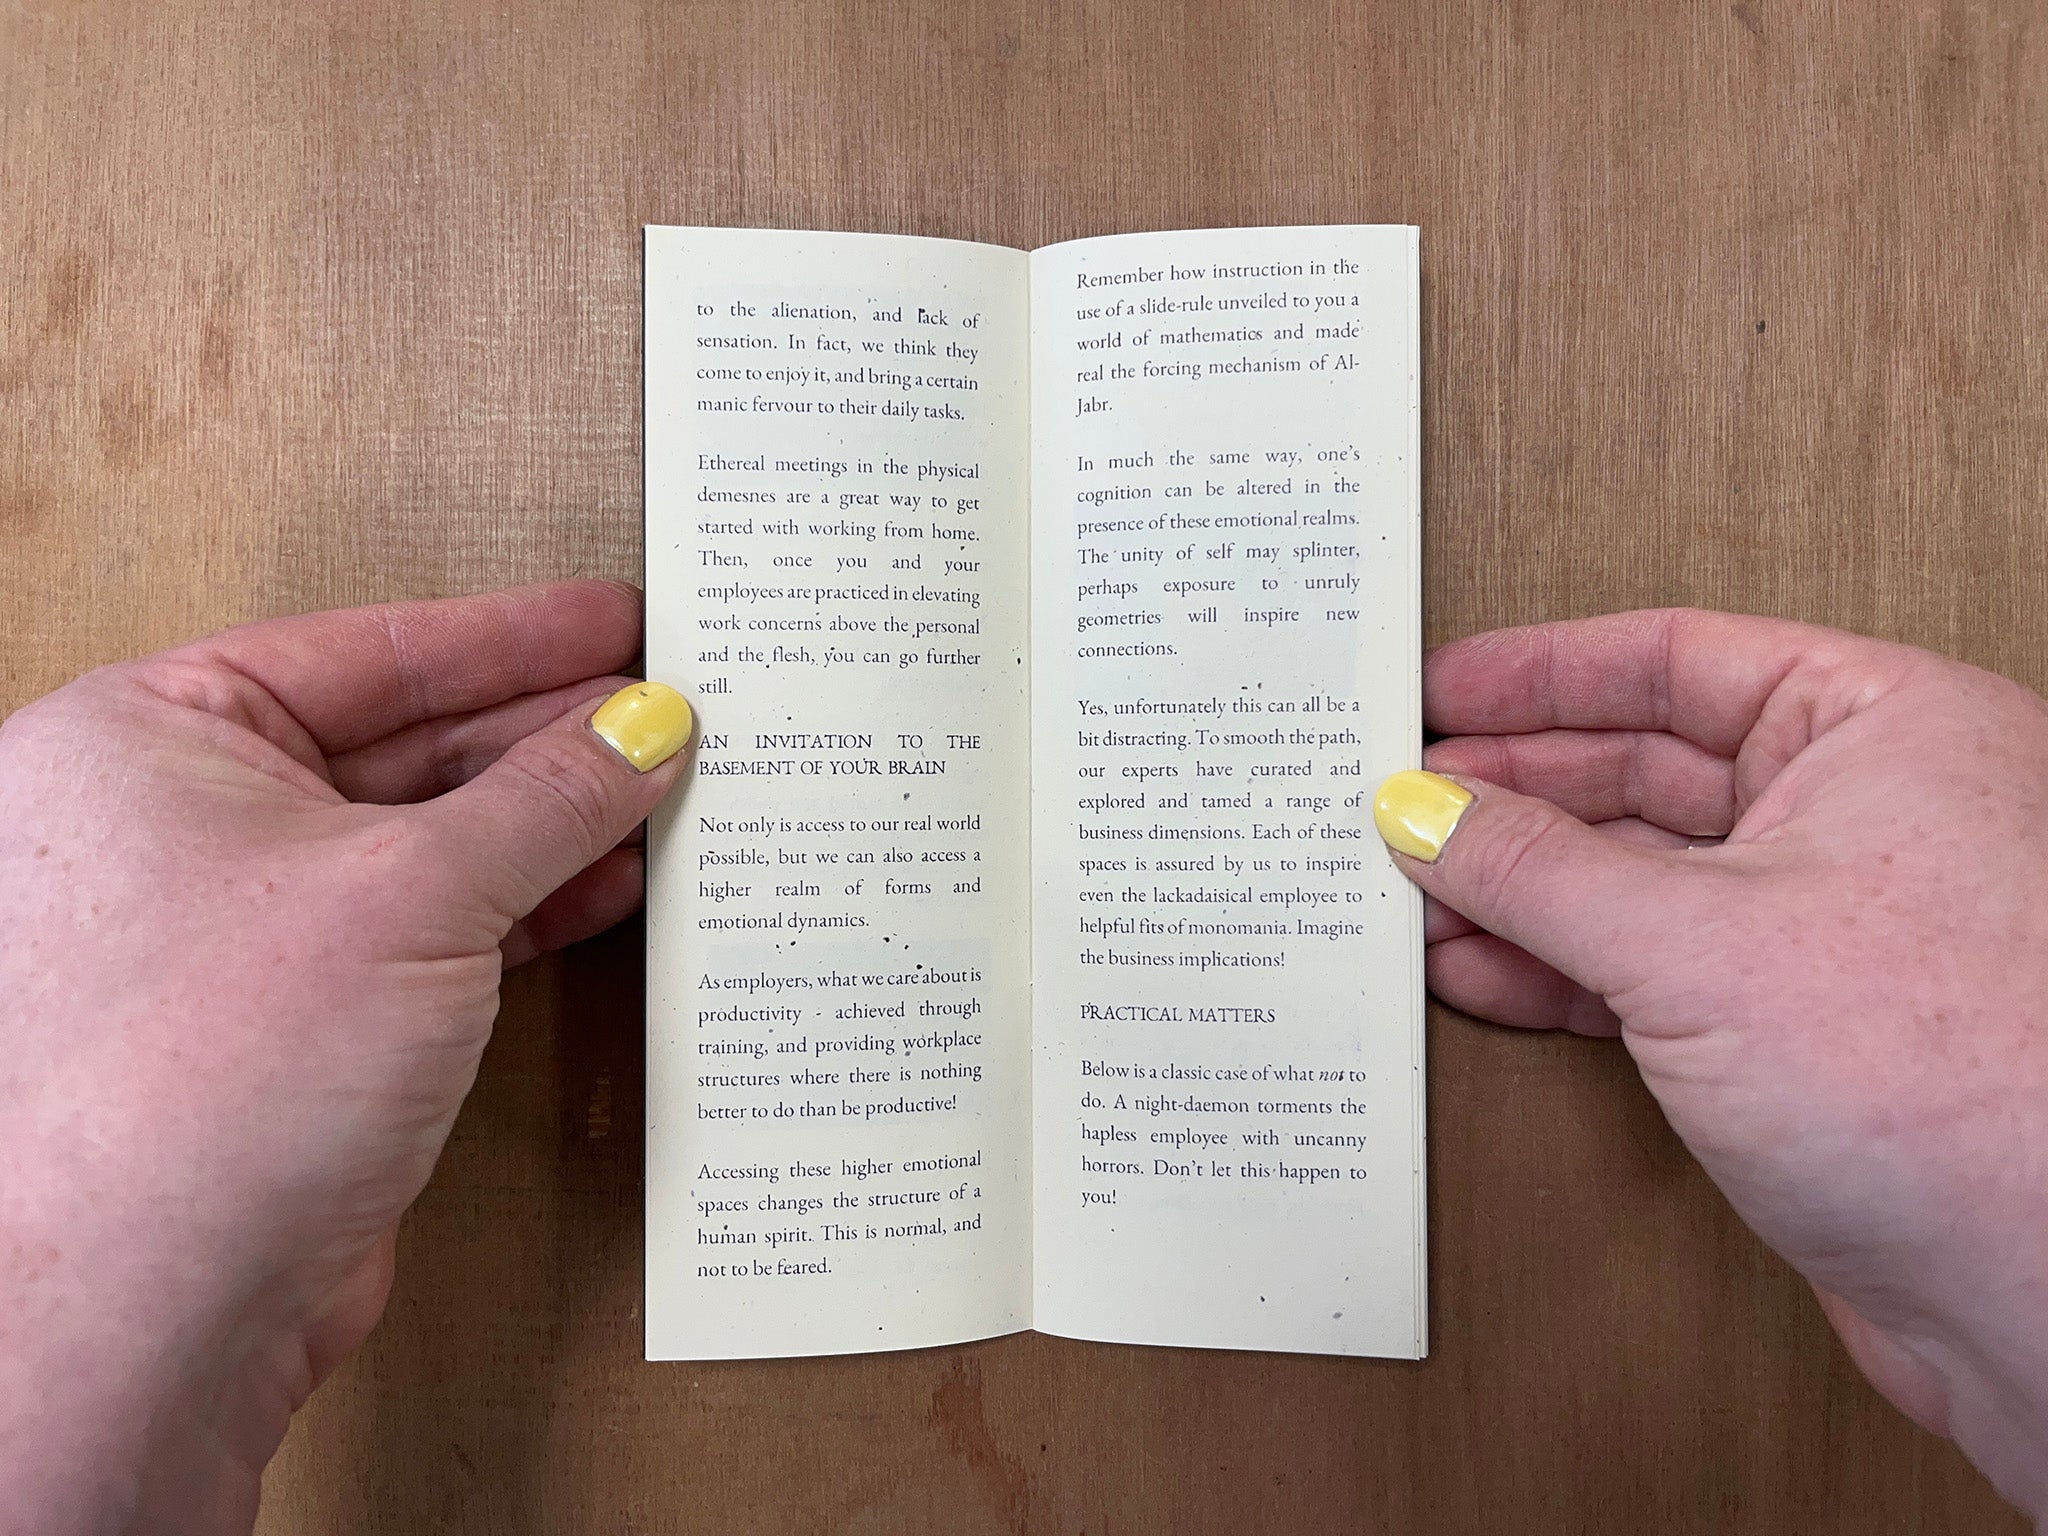 to the alienation, and lack of
sensation. In fact, we think they
come to enjoy it, and bring a certain
manic fervour to their daily tasks.
Ethereal meetings in the physical
demesnes are a great way to get
started with working from home.
Then, once you and your
employees are practiced in elevating
work concerns above the personal
and the flesh, you can go further
still.
AN INVITATION TO THE
BASEMENT OF YOUR BRAIN
Not only is access to our real world
possible, but we can also access a
higher realm of forms and
emotional dynamics.
As employers, what we care about is
productivity - achieved through
training, and providing workplace
structures where there is nothing
better to do than be productive!
Accessing these higher emotional
spaces changes the structure of a
human spirit. This is normal, and
not to be feared.
Remember how instruction in the
use of a slide-rule unveiled to you a
world of mathematics and made
real the forcing mechanism of Al-
Jabr.
In much the same way, one's
cognition can be altered in the
presence of these emotional realms.
The unity of self may splinter,
perhaps exposure to unruly
geometries will inspire new
connections.
Yes, unfortunately this can all be a
bit distracting. To smooth the path,
our experts have curated and
explored and tamed a range of
business dimensions. Each of these
spaces is assured by us to inspire
even the lackadaisical employee to
helpful fits of monomania. Imagine
the business implications!
PRACTICAL MATTERS
Below is a classic case of what not to
do. A night-daemon torments the
hapless employee with uncanny
horrors. Don't let this happen to
you!